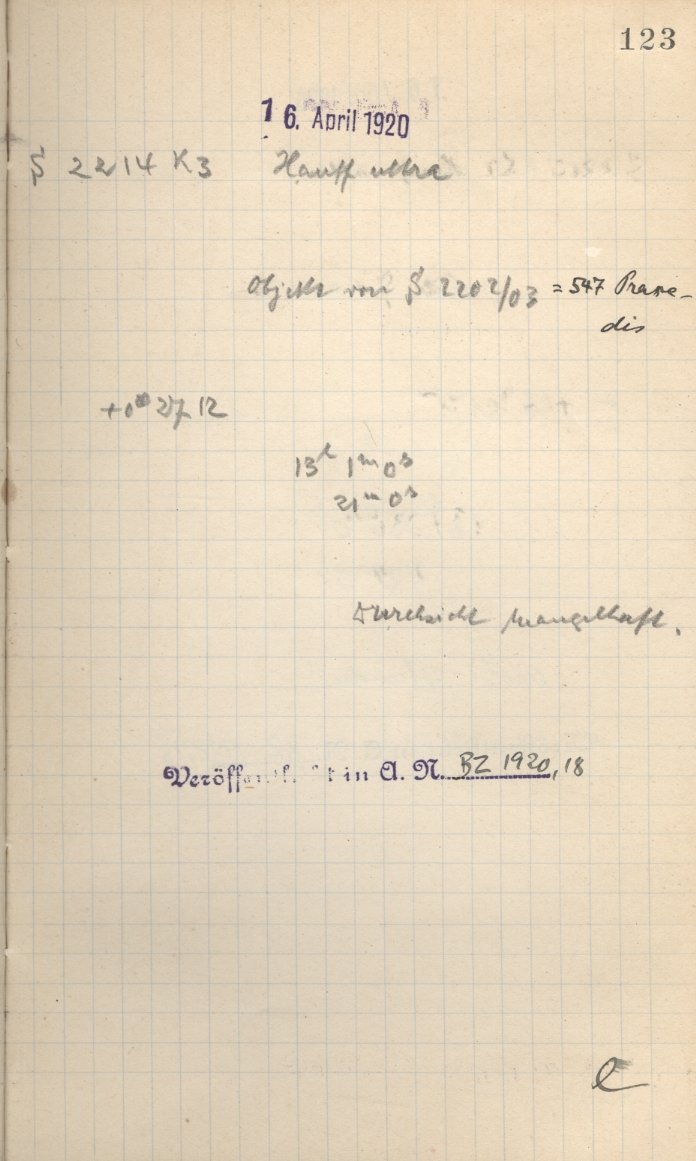 123
16. April 1920
§ 2214 K3 Hauff ultra
Objekt von § 2202/03 = 547 Praxe-
dis
+0° 2712
13h 1m 0s
21m 0s
Durchsicht mangelhaft.
Veröffentlicht in A. N. BZ 1920, 18